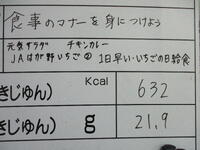 食事のマナーを身につけよう
元気サラダ チキンカレー
JAはが野いちご② 1日早い・いちごの日給食
Kcal
きじゅん) 632
じゅん) g 21.9